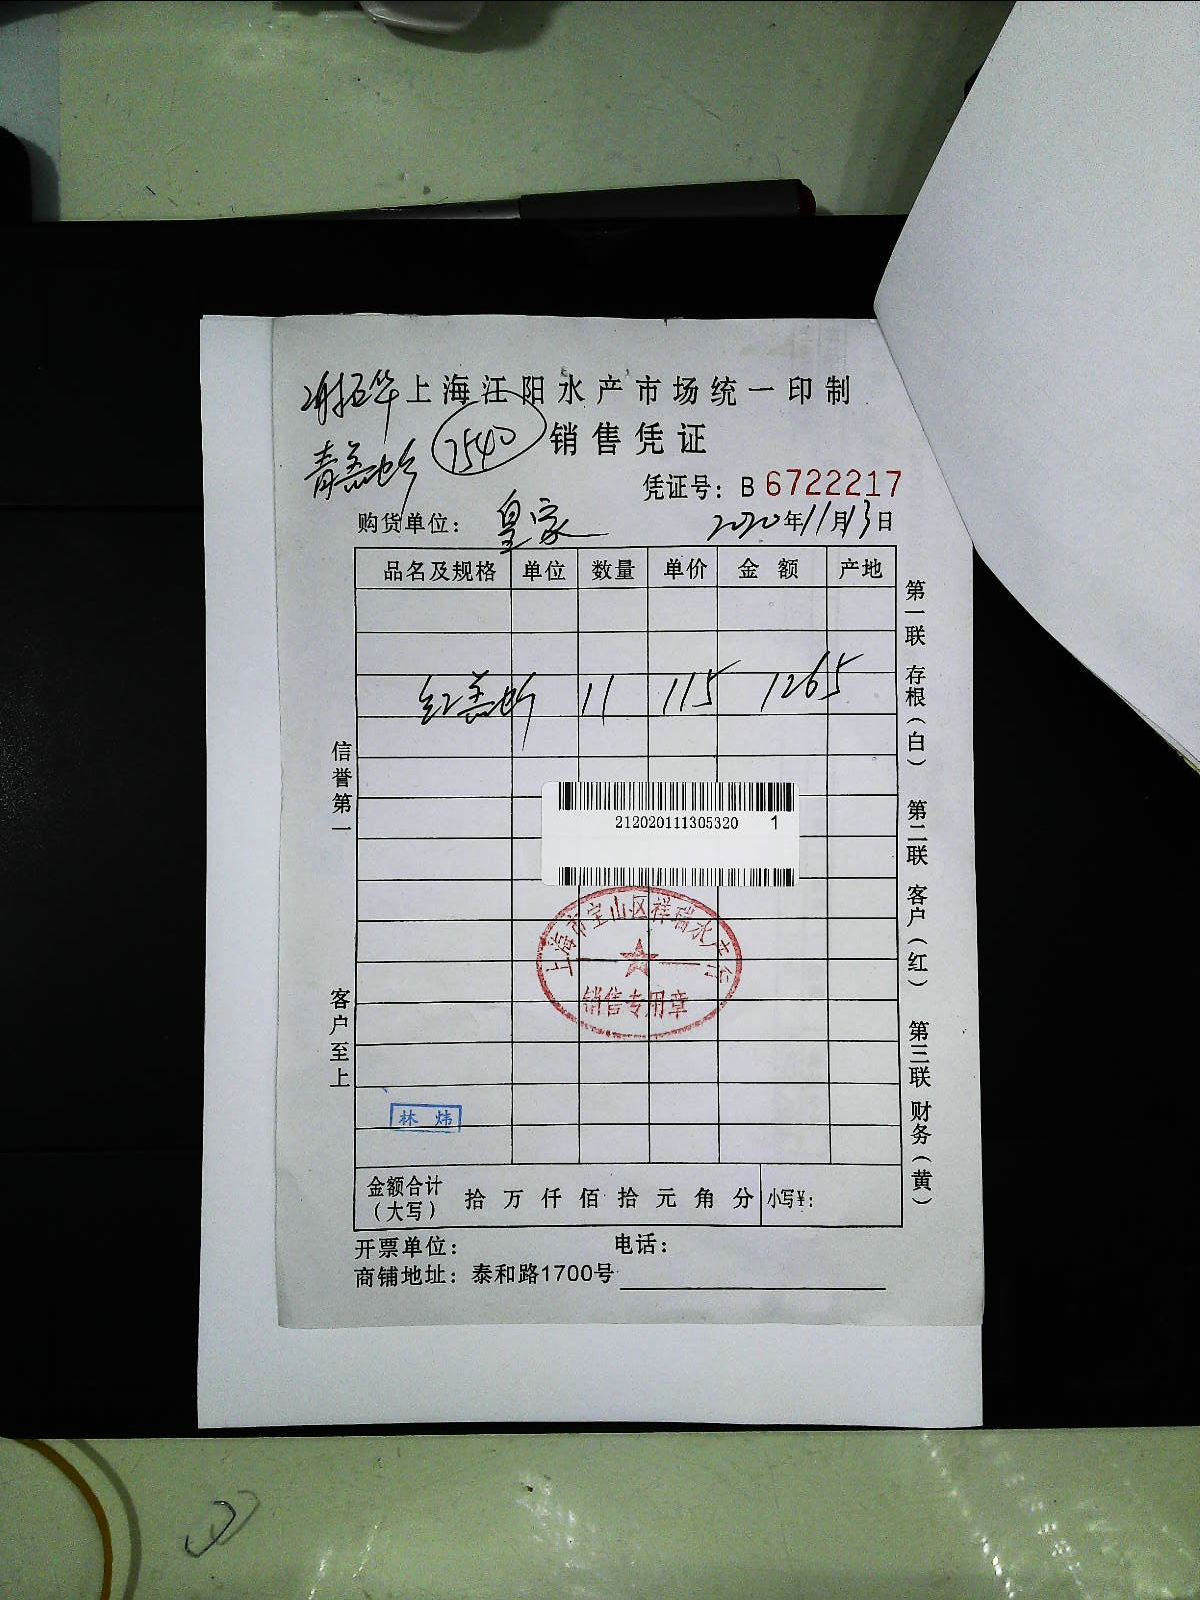 上海江阳水产市场统一印制
7540 销售凭证
凭证号：B 6722217
购货单位：皇家 2020年11月13日
品名及规格 单位 数量 单价 金额 产地
11 115 1265
第一联 存根（白） 第二联 客户（红） 第三联 财务（黄）
信誉第一 客户至上
212020111305320 1
上海市宝山区祥瑞水产行
销售专用章
林炜
金额合计（大写） 拾万仟佰拾元角分 小写¥：
开票单位： 电话：
商铺地址：泰和路1700号